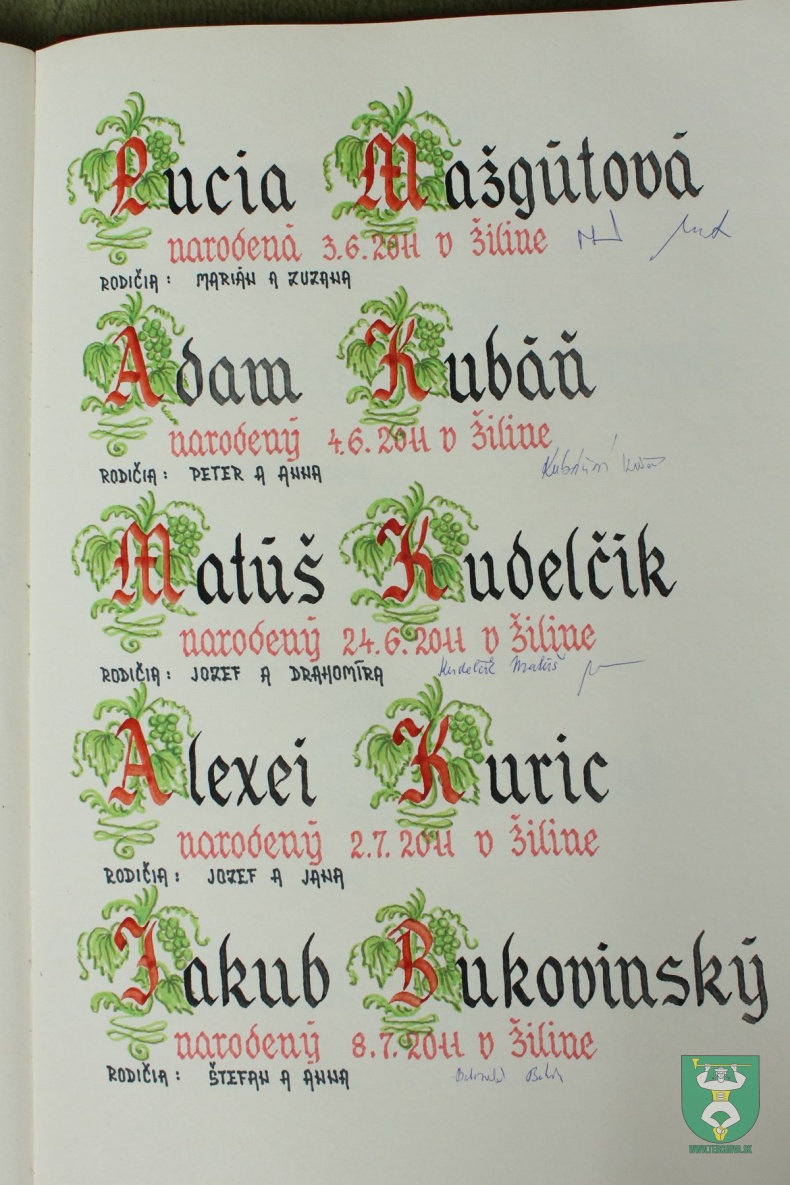 Lucia Mažgútová
narodená 3.6.2011 v žiline
RODIČIA: MARIÁN A ZUZANA
Adam Kubáň
narodený 4.6.2011 v žiline
RODIČIA: PETER A ANNA
Matúš Kudelčík
narodený 24.6.2011 v žiline
RODIČIA: JOZEF A DRAHOMÍRA
Kudelčík Matúš
Alexei Kuric
narodený 2.7.2011 v žiline
RODIČIA: JOZEF A JANA
Jakub Bukovinský
narodený 8.7.2011 v žiline
RODIČIA: ŠTEFAN A ANNA
WWW.TERCHOVA.SK